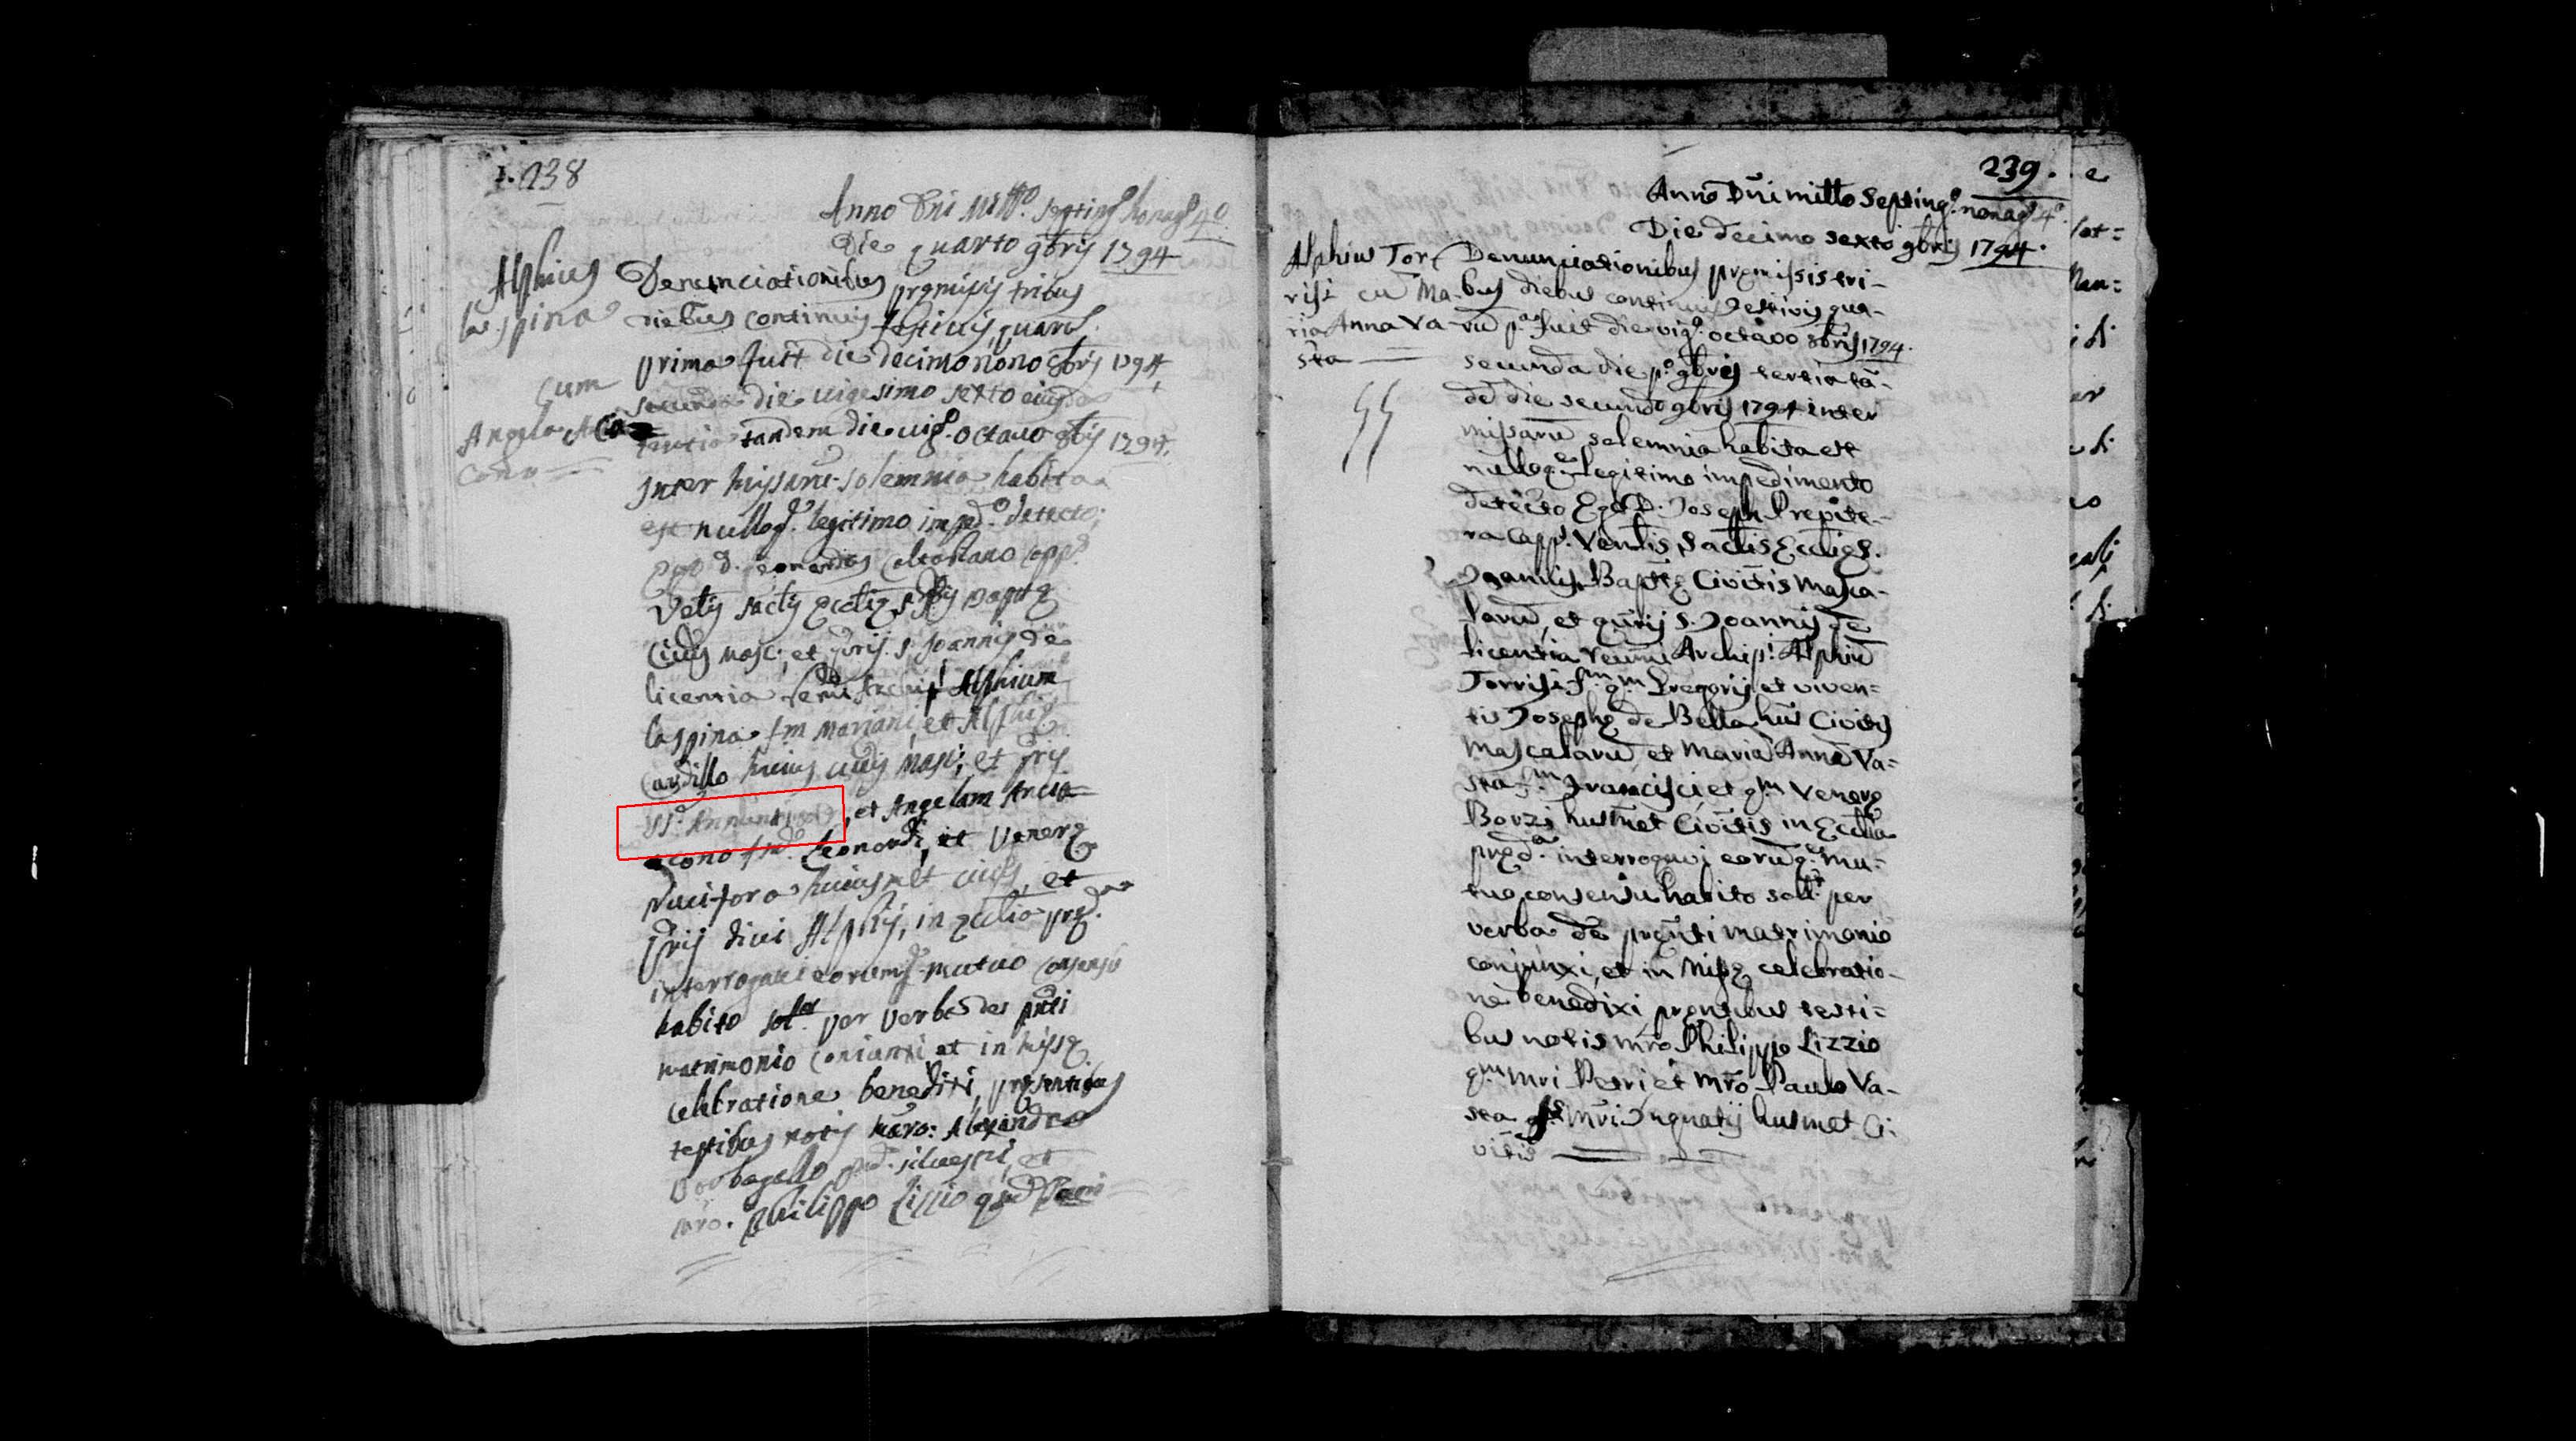 238
Anno Dni Mill.o septing.o nonag.o 4.o
Die quarto 9bris 1794
Alphius
la spina
cum
Angela Arca
cono
Denunciationibus premissis tribus
diebus continuis festivis, quarũ
prima fuit die decimo nono 8bris 1794
secunda die vigesimo sexto eiusd.
tertia tandem die vig.o octavo 8bris 1794.
inter missarũ solemnia habita
est nulloq. legitimo imped.o detecto;
Ego D. Leonardus Capp.
Vent.s Sact.s Ecclie
Civit.s Masc; et q̃ris s. Joannis de
licentia Rev.mi Archip.l Alphium
la spina f.m Mariani, et Alphie
Cardillo huius civit.s Masc; et q̃ris
SS.e Annuntiat, et Angelam Arca
cono f.m q.o Leonardi, et Venere
Nucifora huiusmet civit.s, et
q̃ris divi Alphij, in Ecclia pred.a
interrogavi eorumq. mutuo consensu
habito sol.r per verba de p̃nti
matrimonio coniunxi et in Misse
celebratione benedixi, presentibus
testibus notis Mãro: Alexandro
Barbagallo q.d silvestri, et
mro. Philippo Lizzio q.d Petri
239.
Anno Dñi millo Septing.o nonag.o 4.o
Die decimo sexto 9bris 1794.
Alphius Tor
risi cũ Ma-
ria Anna Va-
sta
Denunciationibus premissis tri-
bus diebus continuis festivis qua-
rũ p.a fuit die vig.o octavo 8bris 1794.
secunda die p.o 9bris tertia tã-
dẽ die secundo 9bris 1794 inter
missarũ solemnia habita est
nulloq.e legitimo impedimento
detecto Ego D. Joseph Prepite-
ra Capp. Ventlis Sactlis Ecclie S.
Joannis Bapte Civitis Masca-
larũ, et q̃ris S. Joannis de
licentia Revmi Archip.l Alphiũ
Torrisi f.m q.m Gregorij et viven-
tis Josephe de Bella hus Civitis
Mascalarũ et Mariã Annã Va-
sta f.m Francisci et q.m Venere
Borzi husmet Civitis in Ecclia
pred.a interrogavi eorũq.e mu-
tuo consensu habito sol.r per
verba de prenti matrimonio
conjunxi, et in Misse celebratio-
ne benedixi prentibus testi-
bus notis mro Philippo Lizzio
q.m mri Petri et Mro Paulo Va-
sta mri Ignatij husmet Ci-
vitis